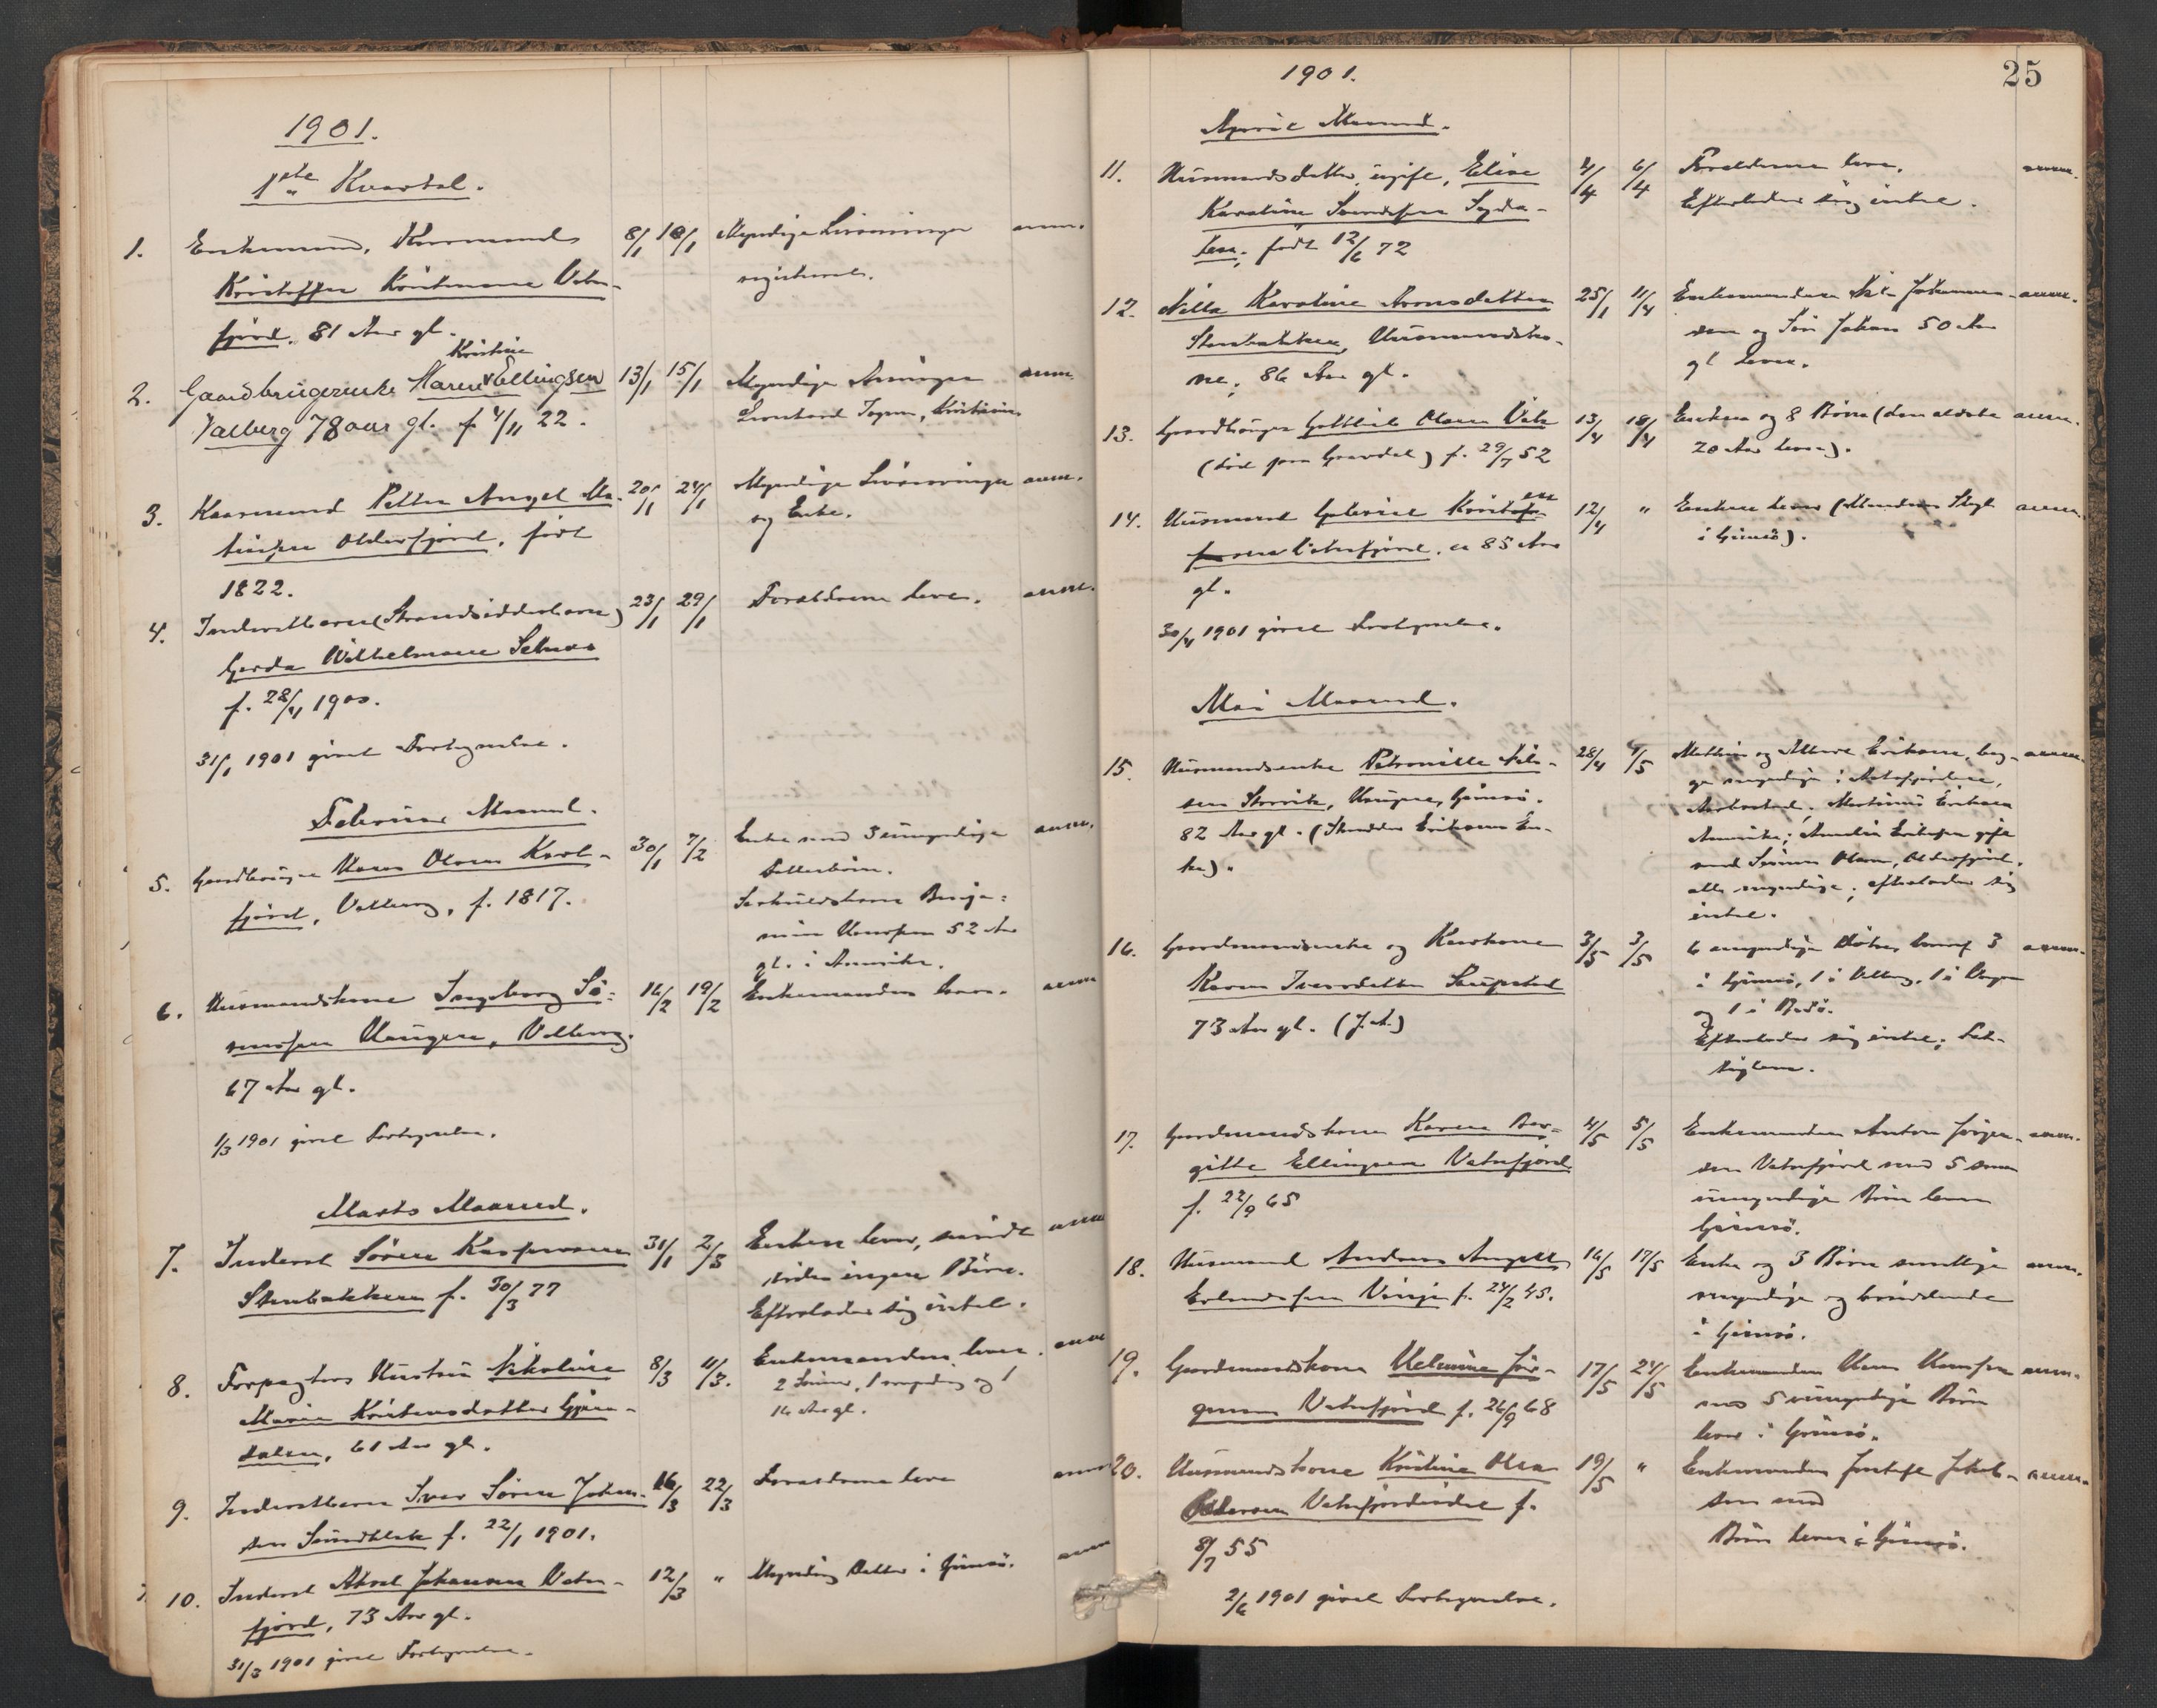 1901.
1ste Kvartal.
1. Enkemand, Kaarmand 8/1 10/1 Myndige Livsarvinger anm.
Kristoffer Kristensen Vatn-
fjord. 81 Aar gl.
2. Gaardbrugerenke Maren Kristine Ellingsen 13/1 15/1 Myndige Arvinger anm.
Valberg 78 aar gl. f. 4/11 22.
3. Kaarmand Petter Angel Ma- 20/1 24/1 Myndige Livsarvinger anm.
thisen Olderfjord, født og Enke.
1822.
4. Inderstbarn (Strandsidderbarn) 23/1 29/1 Forældrene lever. anm.
Gerda Wilhelmine
f. 28/11 1900.
31/1 1901 givet Fortegnelse.
Februar Maaned.
5. Gaardbruger Hans Olsen Kval- 30/1 7/2 Enke med 3 umyndige anm.
fjord, Valberg, f. 1817. Datterbørn.
Særkuldsbarn Benja-
min Hansen 52 Aar
gl. i Amerika.
6. Husmandskone Ingeborg Si- 16/2 19/2 Enkemanden lever. anm.
monsen Haugen, Valberg.
67 Aar gl.
1/3 1901 givet Fortegnelse.
Marts Maaned.
7. Inderst Søren Kaspersen 31/1 2/3 Enken lever, anm.
Stenbakken f. 30/3 77 ingen Børn.
Efterlader sig intet.
8. Forpagters Hustru Nikoline 8/3 11/3. Enkemanden lever. anm.
Marie Kristensdatter 2 Sønner, 1 myndig og 1
dalen, 61 Aar gl. 16 Aar gl.
9. Inderstbarn Ivar Søren Johan- 16/3 22/3 Forældrene lever anm.
sen Sundklak f. 22/1 1901.
10. Inderst Aksel Johansen Vatn- 12/3 " Myndig Datter i Gimsø. anm.
fjord, 73 Aar gl.
31/3 1901 givet Fortegnelse.
25
1901.
April Maaned.
11. Husmandsdatter, ugift, Elise 4/4 6/4 Forældrene lever. anm.
Karoline Sivertsen Syda-
len, født 12/6 72 Efterlader sig intet.
12. Nilla Karoline Aronsdatter 25/1 11/4 Enkemanden Nils Johannes- anm.
Stenbakken, Husmandsko- sen og Søn Johan 50 Aar
ne, 86 Aar gl. gl lever.
13. Gaardbruger Gottlieb Olsen Vik 13/4 18/4 Enken og 8 Børn (den ældste anm.
(død paa Gravdal) f. 29/7 52 20 Aar lever).
14. Husmand Gabriel Kristof- 12/4 " Enken lever anm.
fersen Vatnfjord. ca 85 Aar i Gimsø).
gl.
30/4 1901 givet Fortegnelse.
Mai Maaned.
15. Husmandsenke Petronille Nil- 28/4 4/5 Mathias og Albert Eriksen, beg- anm.
sen Storvik, Haugen, Gimsø. ge myndige i
82 Aar gl. ( Eriksens En- Martinus Eriksen
ke). Amerika; Amalie Eriksen gift
med Simon Olsen, Olderfjord.
alle myndige; efterlader sig
intet.
16. Gaardmandsenke og Kaarkone 3/5 3/5 6 myndige Døtre, hvoraf 3 anm.
Karen Iversdatter Saupstad i Gimsø, 1 i Valberg, 1 i
73 Aar gl. og 1 i Bodø.
Efterlader sig intet; Fat-
tiglem.
17. Gaardmandskone Karen Ber- 4/5 5/5 Enkemanden Anton Jørgen- anm.
gitte Ellingsen Vatnfjord sen Vatnfjord med 5 smaa
f. 22/9 65 umyndige Børn lever
Gimsø.
18. Husmand Anders Angell 16/5 17/5 Enke og 3 Børn samtlige anm.
Erlandsen Vinje f. 24/2 45. myndige og boende
i Gimsø.
19. Gaardmandskone Helmine Jør- 17/5 24/5 Enkemanden Hans Hansen anm.
gensen Vatnfjord f. 26/9 68 med 5 umyndige Børn
lever i Gimsø.
20. Husmandskone Kristine Olea 19/5 " Enkemanden Jentoft Jakob- anm.
Pedersen Vatnfjordeidet f. sen med
8/7 55 Børn lever i Gimsø.
2/6 1901 givet Fortegnelse.